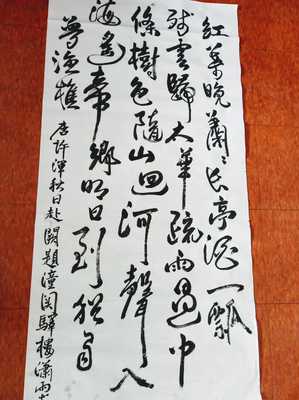 紅葉晚蕭々長亭酒一瓢
殘雲歸太華疏雨過中
條樹色隨山迴河聲入
海遙帝鄉明日到猶自
夢漁樵 唐許渾秋日赴闕題潼关驛樓瀟雨书